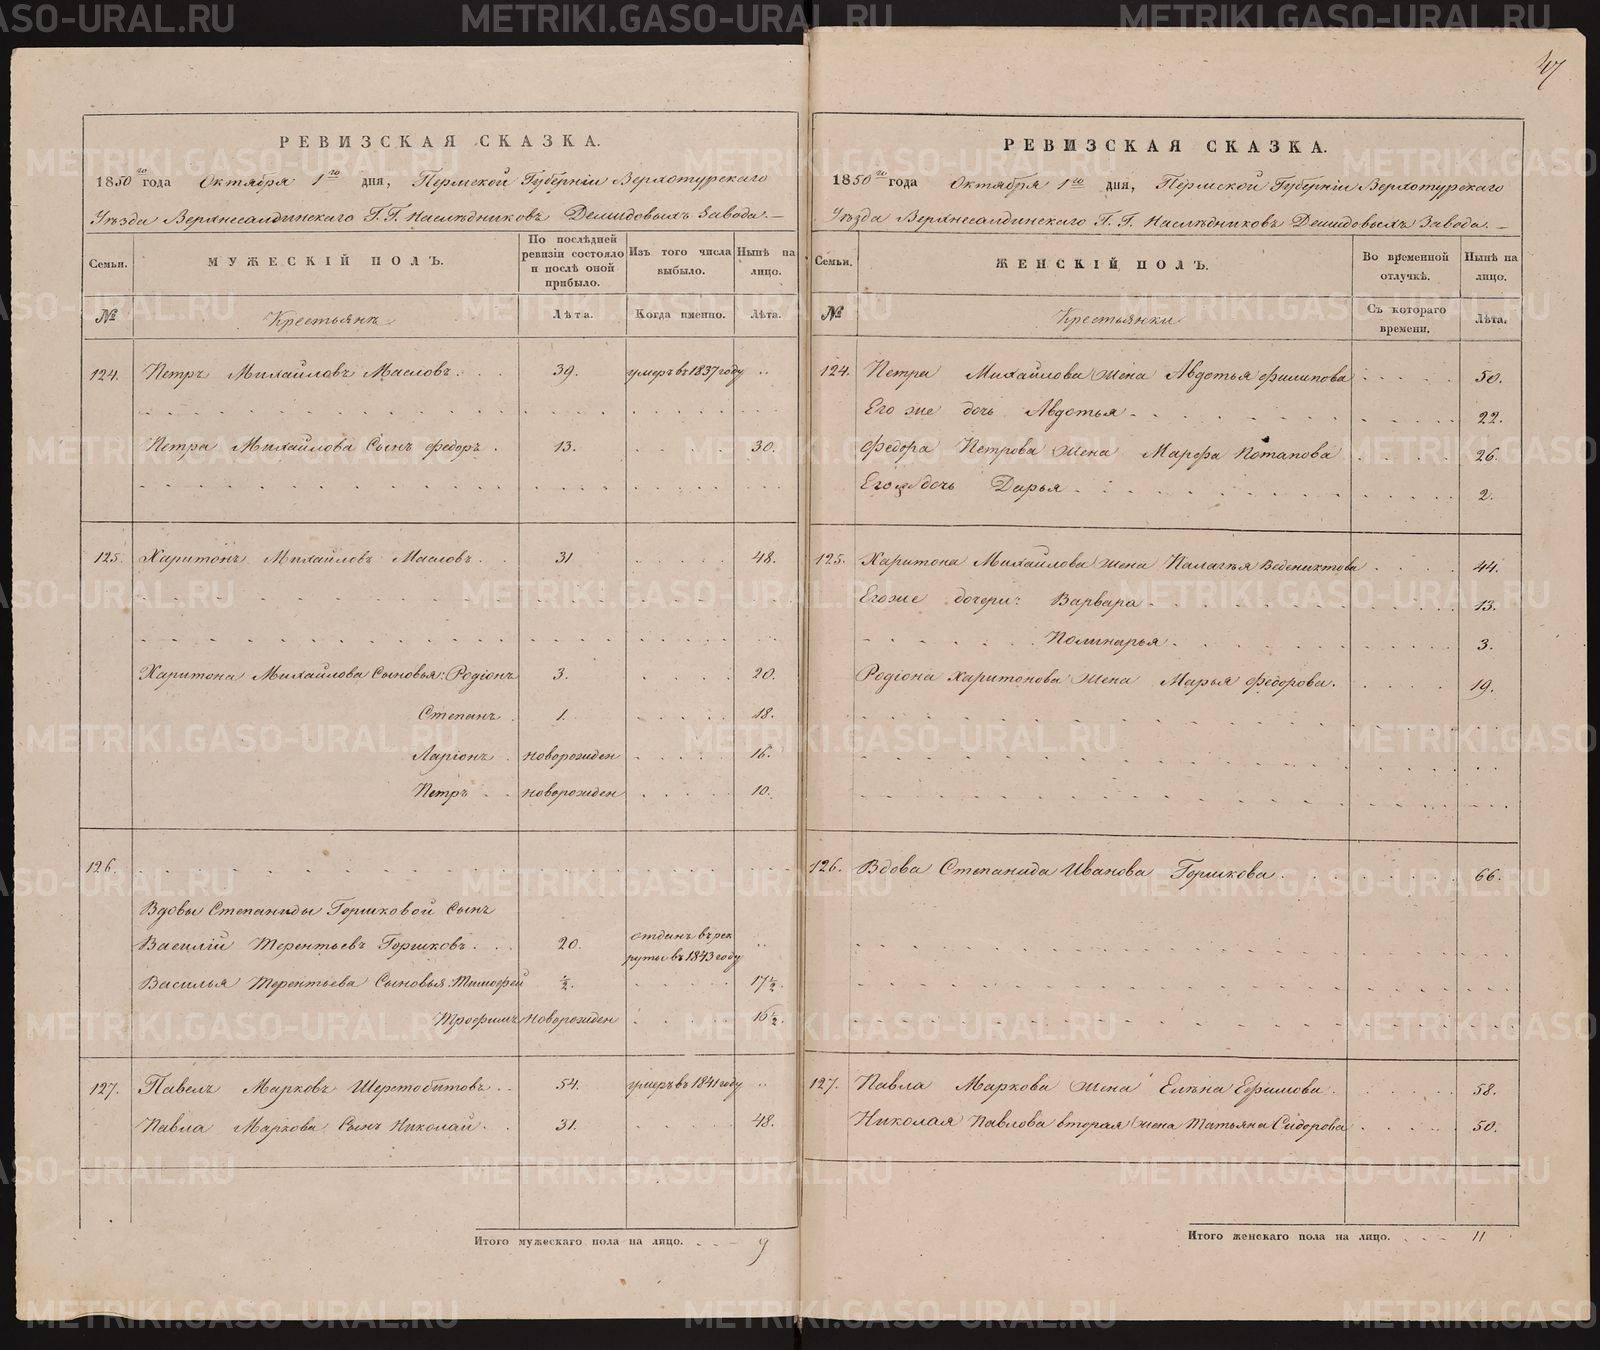 47
РЕВИЗСКАЯ СКАЗКА.
1850го года Октября 1го дня, Пермской Губерніи Верхотурскаго
Уѣзда Верхнесалдинскаго Г.Г. Наслѣдниковъ Демидовыхъ Завода.
Семьи.
МУЖЕСКІЙ ПОЛЪ.
По послѣдней ревизіи состояло и послѣ оной прибыло.
Изъ того числа выбыло.
Нынѣ на лицо.
№
Крестьянъ
Лѣта.
Когда именно.
Лѣта.
124. Петръ Михайловъ Масловъ. 39. умеръ въ 1837 году
Петра Михайлова Сынъ Федоръ. 13. 30.
125. Харитонъ Михайловъ Масловъ. 31 48.
Харитона Михайлова Сыновья: Родіонъ 3. 20.
Степанъ. 1. 18.
Ларіонъ. новорожден 16.
Петръ новорожден 10.
126.
Вдовы Степаниды Горшковой Сынъ
Василій Терентьевъ Горшковъ. 20. отданъ въ рек
руты въ 1843 году
Василья Терентьева Сыновья: Тимофей ½. 17½.
Трофимъ новорожден 16½.
127. Павелъ Марковъ Шерстобитовъ. 54. умеръ въ 1841 году
Павла Маркова Сынъ Николай. 31. 48.
Итого мужескаго пола на лицо. 9
РЕВИЗСКАЯ СКАЗКА.
1850го года Октября 1го дня, Пермской Губерніи Верхотурскаго
Уѣзда Верхнесалдинскаго Г.Г. Наслѣдниковъ Демидовыхъ Завода.
Семьи.
ЖЕНСКІЙ ПОЛЪ.
Во временной отлучкѣ.
Нынѣ на лицо.
№
Крестьянки
Съ котораго времени.
Лѣта.
124. Петра Михайлова жена Авдотья Филипова 50.
Его же дочь Авдотья 22.
Федора Петрова жена Марфа Потапова 26.
Его дочь Дарья 2.
125. Харитона Михайлова жена Палагѣя Веденихтова 44.
Его же дочери: Варвара 13.
Полинарья 3.
Родіона Харитонова жена Марья Федорова. 19.
126. Вдова Степанида Иванова Горшкова. 66.
127. Павла Маркова жена Елѣна Ефимова. 58.
Николая Павлова вторая жена Татьяна Сидорова 50.
Итого женскаго пола на лицо. 11
METRIKI.GASO-URAL.RU